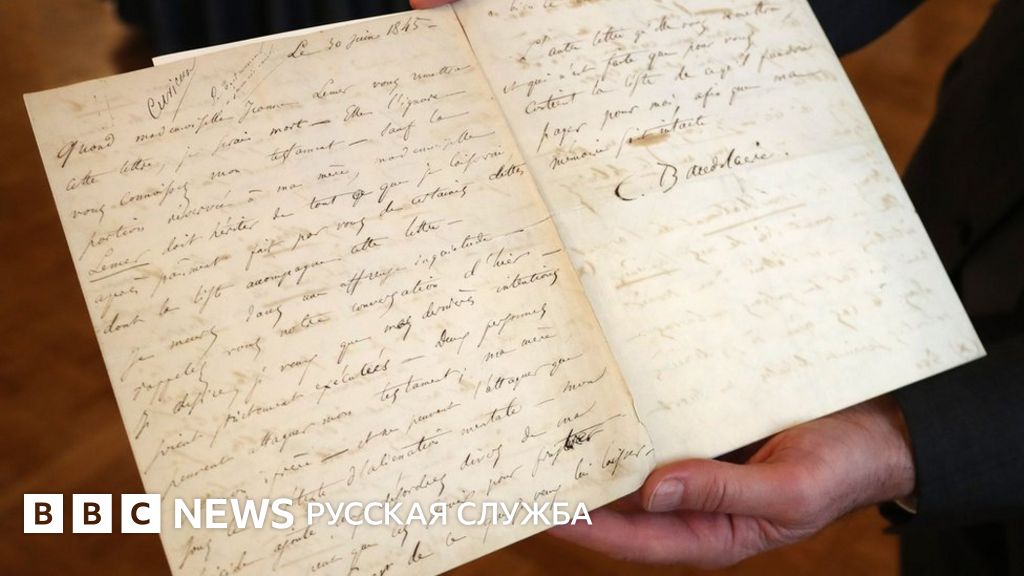 Le 30 juin 1845 —
Cuvinon
Quand mademoiselle Jeanne Lemer vous remettra
cette lettre, je serai mort — Elle l'ignore
vous connaissez mon testament — Sauf la
portion réservée à ma mère, mademoiselle
Lemer doit hériter de tout ce que je laisserai
après paiement fait par vous de certaines dettes
dont la liste accompagne cette lettre —
Je meurs dans une affreuse inquiétude —
rappelez vous notre conversation d'hier —
Je désire, je veux que mes dernières intentions
soient strictement exécutées — Deux personnes
peuvent attaquer mon testament; ma mère
et mon frère — et ne peuvent l'attaquer que
sous prétexte d'aliénation mentale — mon
suicide ajouté aux désordres divers de ma
L'autre lettre qu'elle vous remettra
et qui n'est faite que pour vous
contient la liste de ce qu'il faudra
payer pour moi, afin que ma
mémoire soit intacte
C. Baudelaire.
BBC NEWS РУССКАЯ СЛУЖБА